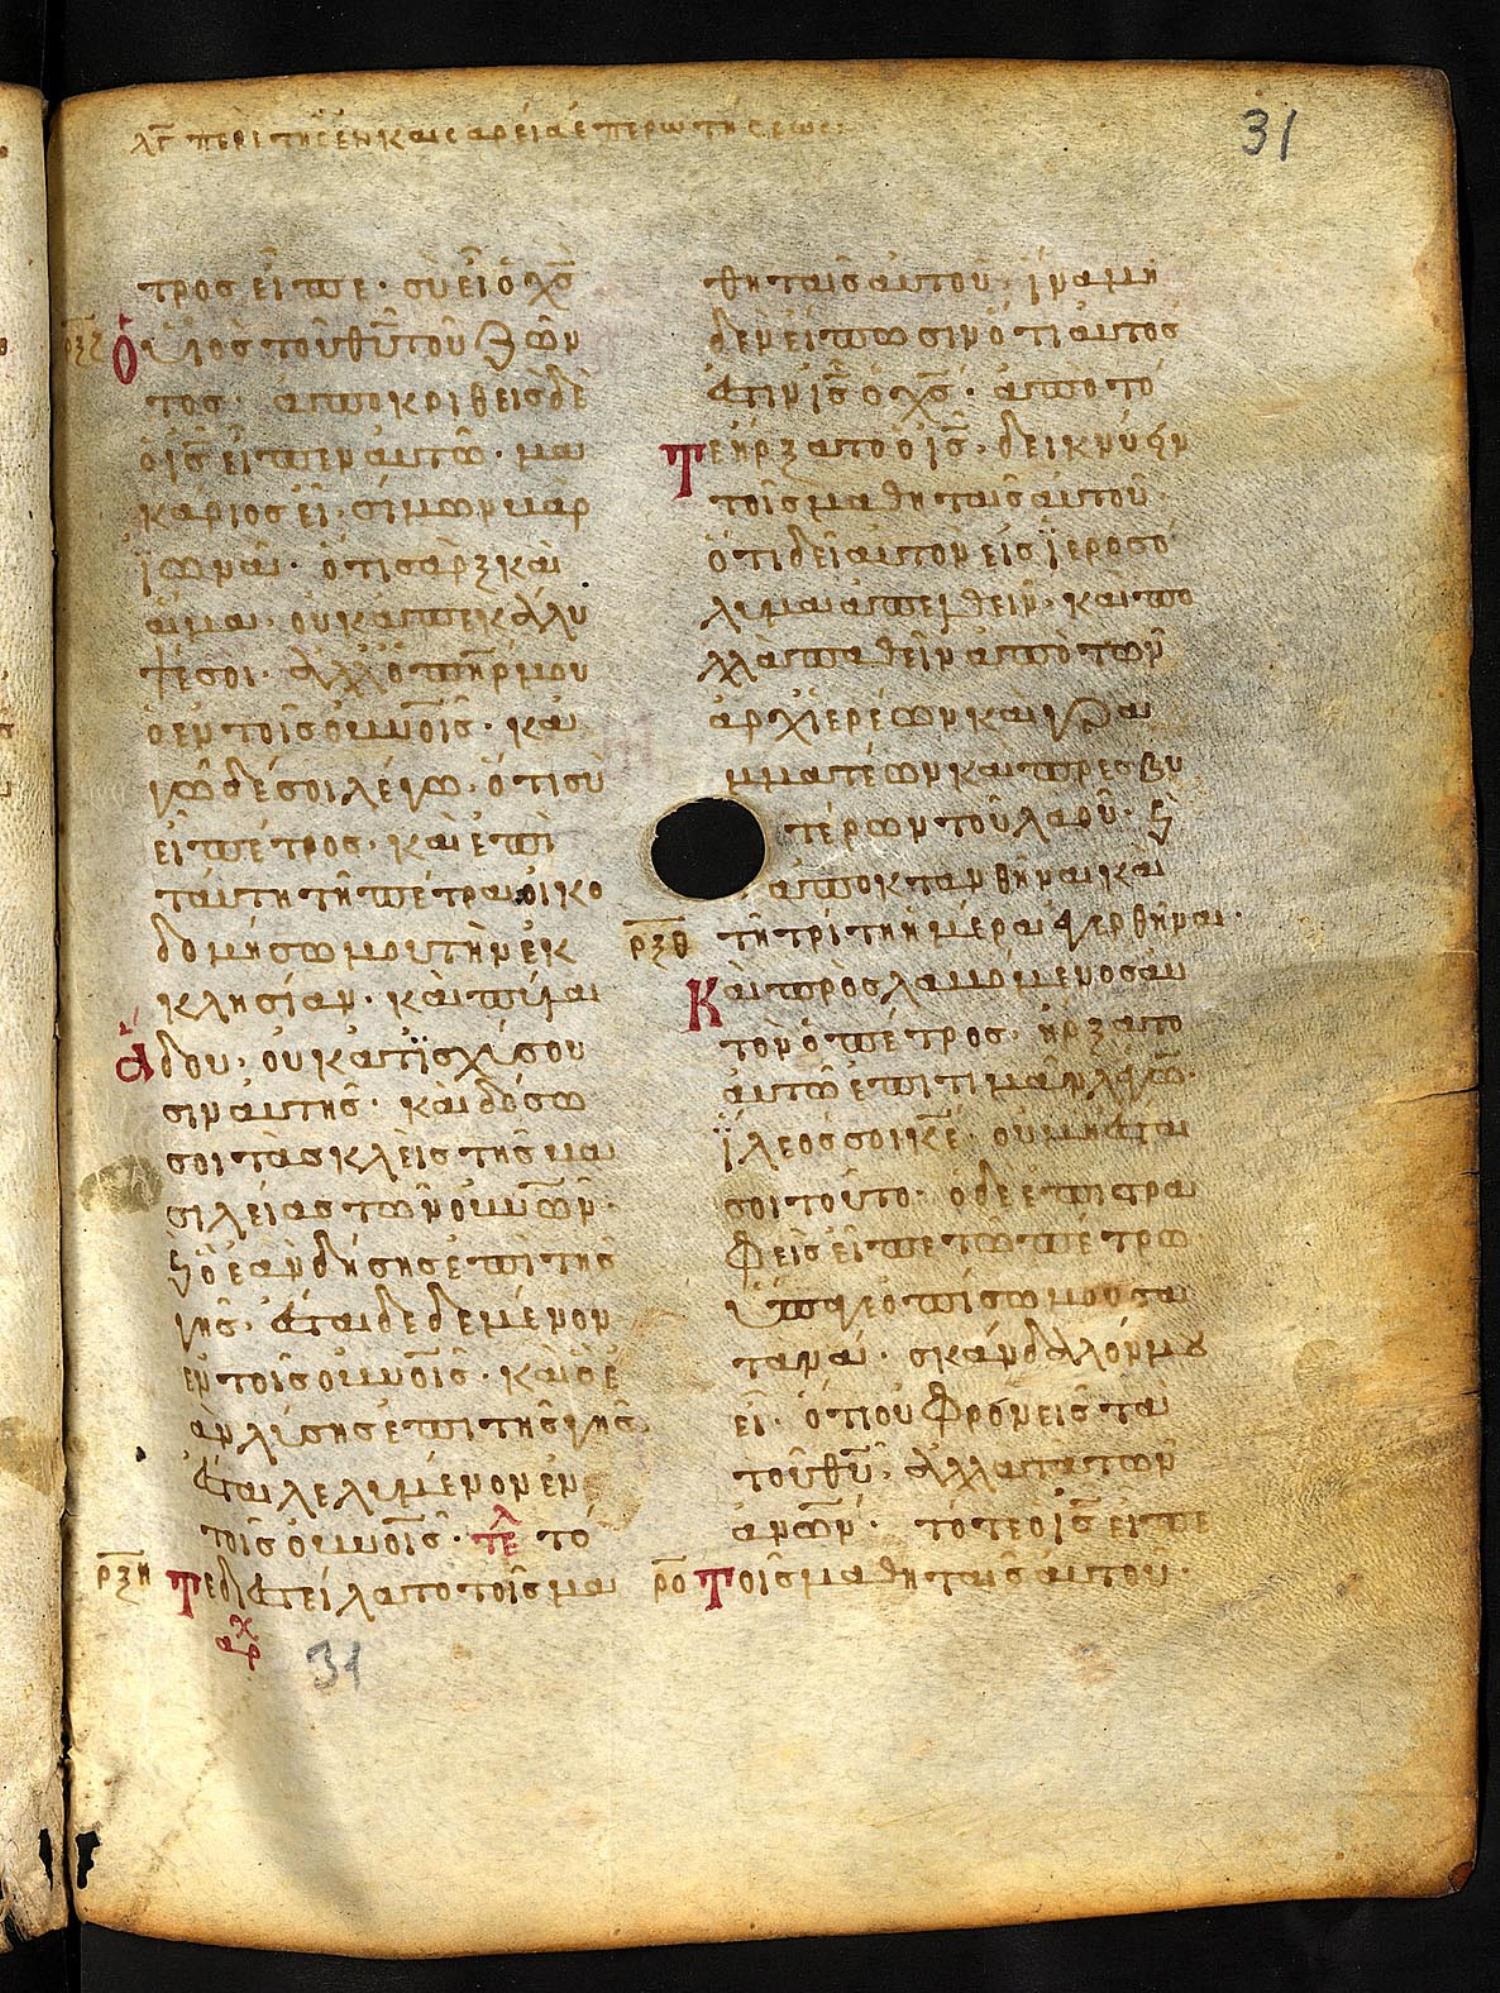 λγ περι της εν καισαρεία επερωτησεως:
31
τρος εἶπε· σὺ εἶ ὁ χ̅ς̅
ρξζ ὁ υἱὸς τοῦ θ̅υ̅ τοῦ ζῶν
τος· ἀποκριθεὶς δὲ
ὁ ι̅ς̅ εἶπεν αὐτῶ· μα
κάριος εἶ· σίμων βὰρ
ϊωνᾶ· ὅτι σὰρξ καὶ
αἷμα· οὐκ ἀπεκάλυ
ψέ σοι· ἀλλ' ὁ π̅η̅ρ̅ μου
ὁ ἐν τοῖς ου̅νο̅ι̅ς· κα
γὼ δέ σοι λέγω· ὅτι σὺ
εἶ πέτρος· καὶ ἐπὶ
ταύτη τῆ πέτρα οἰκο
δομήσω μου τὴν ἐκ
κλησίαν· καὶ πύλαι
ἅδου· οὐ κατϊσχύσου
σιν αὐτῆς· καὶ δώσω
σοι τὰς κλεὶς τῆς βα
σιλείας τῶν ου̅νω̅ν·
ϗ ὃ ἐὰν δήσης ἐπὶ τῆς
γῆς· ἔσται δεδεμένον
ἐν τοῖς ου̅νο̅ι̅ς· καὶ ὃ ἐ
ὰν λύσης ἐπι τῆς γῆς
ἔσται λελυμένον ἐν
τοῖς ου̅νο̅ι̅ς· τελ τό
ρξη τε διεστείλατο τοῖς μα
αρχ
31
θηταῖς αὐτοῦ· ἵνα μη
δενεὶ πωσιν ὅτι αὐτος
ἐστιν ι̅ς̅ ὁ χ̅ς̅· ἀπο τό
τε ἤρξατο ὁ ι̅ς̅· δεικνύειν
τοῖς μαθηταῖς αὐτοῦ
ὅτι δεῖ αὐτον εἰς ϊεροσό
λυμα ἀπελθεῖν· καὶ πο
λλὰ παθεῖν ἀπὸ τῶν
ἀρχϊερέων καὶ γρα
μματέων και πρεσβυ
τέρων τοῦ λαοῦ· ϗ
ἀποκτανθῆναι καὶ
ρξθ τῆ τρίτη ἡμέρα ἐγερθῆναι·
Καὶ προσλαβόμενος αὐ
τὸν ὁ πέτρος· ἤρξατο
αὐτῶ ἐπιτιμᾶν λέγων·
ἵλεός σοι κ̅ε̅· οὐ μὴ ἔσται
σοι τοῦτο· ὁ δὲ ἐπιστρα
φεὶς εἶπε τῶ πέτρω
ὕπαγε ὀπίσω μου σα
τανᾶ· σκάνδαλόν μου
εἶ· ὅτι οὐ φρονεῖς τὰ
τοῦ θ̅υ̅· ἀλλα τὰ τῶν
ἀνω̅ν· τότε ὁ ι̅ς̅ εἶπε
ρο Τοῖς μαθηταῖς αὐτοῦ·